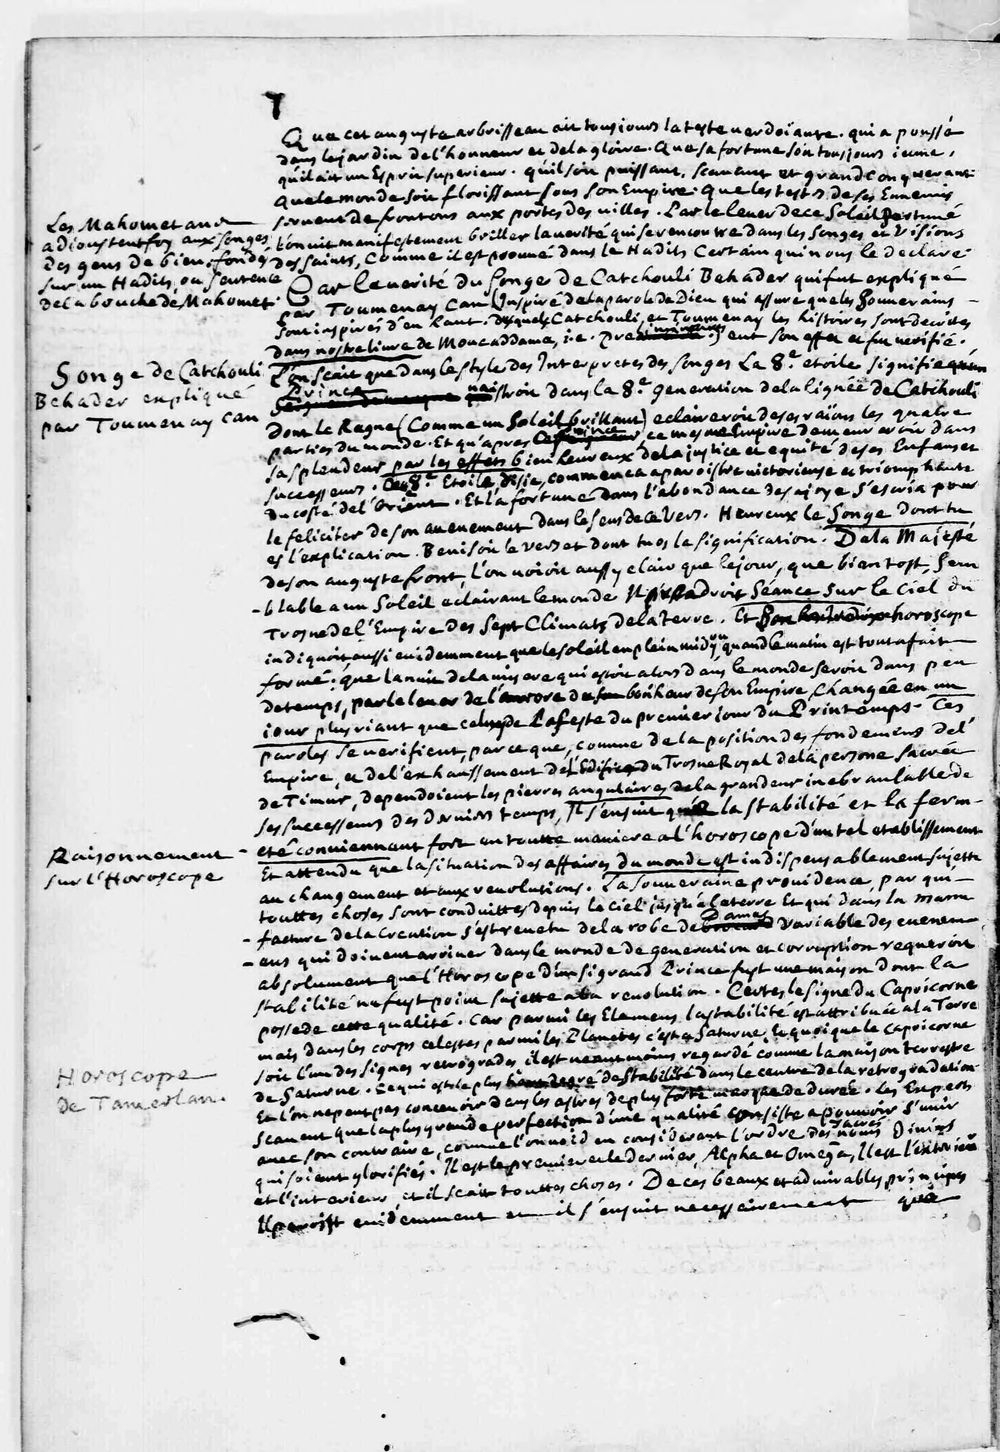 Que cet auguste arbrisseau ait tousjours la teste verdoiante. qui a poussé
dans le jardin de l'honneur et de la gloire. Que sa fortune soit tousjours ieune,
qu'il ait un Esprit superieur. qu'il soit puissant, scauant et grand conquerant
que le monde soit florissant sous son Empire. que les testes de ses Ennemis
seruent de frontons aux portes des villes. Par le leuer de ce Soleil fortuné
Les Mahometans
adjoustent foy aux songes
des gens de bien, fondés
sur un Hadits, ou sentence
de la bouche de Mahomet
l'on vit manifestement briller la verité qui se rencontre dans les songes et Visions
des saints, comme il est prouué dans le Hadits Certain qui nous le declare
Car la verité du songe de Catchouli Behader qui fut expliqué
par Toumenay Can (inspiré de la parole de Dieu qi assure que les souuerains
sont inspirés d'en haut. desquels Catchouli, et Toumenay les histoires sont decrites
dans nostre liure de Moucaddama, i.e. preliminaires) eut son effet et fut verifié.
Songe de Catchouli
Behader expliqué
par Toumenay can
L'on scait que dans le style des Interpretes des songes la 8.e etoile signifie qu'un
Prince naistroit dans la 8.e generation de la lignée de Catchouli
dont le Regne (Comme un Soleil brillant) eclaireroit de ses raïons les quatre
parties du monde. Et qu'apres ce Prince ce mesme Empire demeureroit dans
sa splendeur par les effets bienheureux de la justice et equité de ses Enfans et
successeurs. Cette 8.e Etoile, disje, commenca a paroistre victorieuse et triomphante
du costé de l'Orient. Et la fortune dans l'abondance de sa joye s'escria pour
le feliciter de son auenement dans le sens de ce Vers. Heureux le Songe dont tu
es l'explication. Beni soit le verset dont tu es la signification. De la Majesté
de son auguste front, l'on voioit aussy clair que le jour, que bien tost, sem
-blable a un Soleil eclairant le monde Il prendroit Séance sur le Ciel du
Trosne de l'Empire des Sept Climats de la Terre. Et son horoscope
indiquoit aussi euidemment que le soleil en plein midy, quand le matin est tout a fait
formé. que la nuit de la misere qui estoit alors dans le monde seroit dans peu
de temps, par le leuer de l'aurore du bonheur de son Empire, changée en un
iour plus riant que celuy de la feste du premier jour du Printemps. Ces
paroles se verifient, parce que, comme de la position des fondemens de l'
Empire, et de l'exhaussement de l'Edifice du Trosne Royal de la persone sacrée
de Timur, dependoient les pierres angulaires de la grandeur inebranlable de
ses successeurs des derniers temps, Il s'ensuit que la stabilité et la ferm-
Raisonnement
sur l'Horoscope
-eté conviennent fort en toutte maniere a l'horoscope d'un tel etablissement
Et attendu que la situation des affaires du monde est indispensablement sujette
au changement et aux reuolutions. La souueraine prouidence, par qui
touttes choses sont conduittes depuis le Ciel jusqu'a la terre Et qui dans la manu
-facture de la Creation s'est reuetue de la robe de Damas variable des euenem
-ens qui doiuent arriuer dans le monde de generation et corruption requeroit
absolument que l'Horoscope d'un si grand Prince fust une maison dont la
stabilité ne fust point sujette a la reuolution. Certes le signe du Capricorne
possede cette qualité. Car parmi les Elemens, la stabilité est attribuée a la Terre
mais dans les corps celestes parmi les Planetes c'est a Saturne, Et quoi que le Capricorne
soit l'un des signes retrogrades, il est neantmoins regardé comme la maison terrestre
Horoscope
de Tamerlan.
de Saturne. Ce qui est le plus de stabilité dans le centre de la retrogradation
Et l'on ne peut pas conceuoir dans les astres de plus forte marque de durée. les Experts
scauent que la plus grande perfection d'une qualité consiste a pouuoir s'unir
auec son contraire, comme l'on void en considerant l'ordre des sacrés noms Diuins
qui soient glorifiés. Il est le premier et le dernier, Alpha et Omega, Il est l'exterieur
et l'interieur et il scait touttes choses. De ces beaux et admirables principes
Il paroist euidemment et il s'ensuit necessairement que